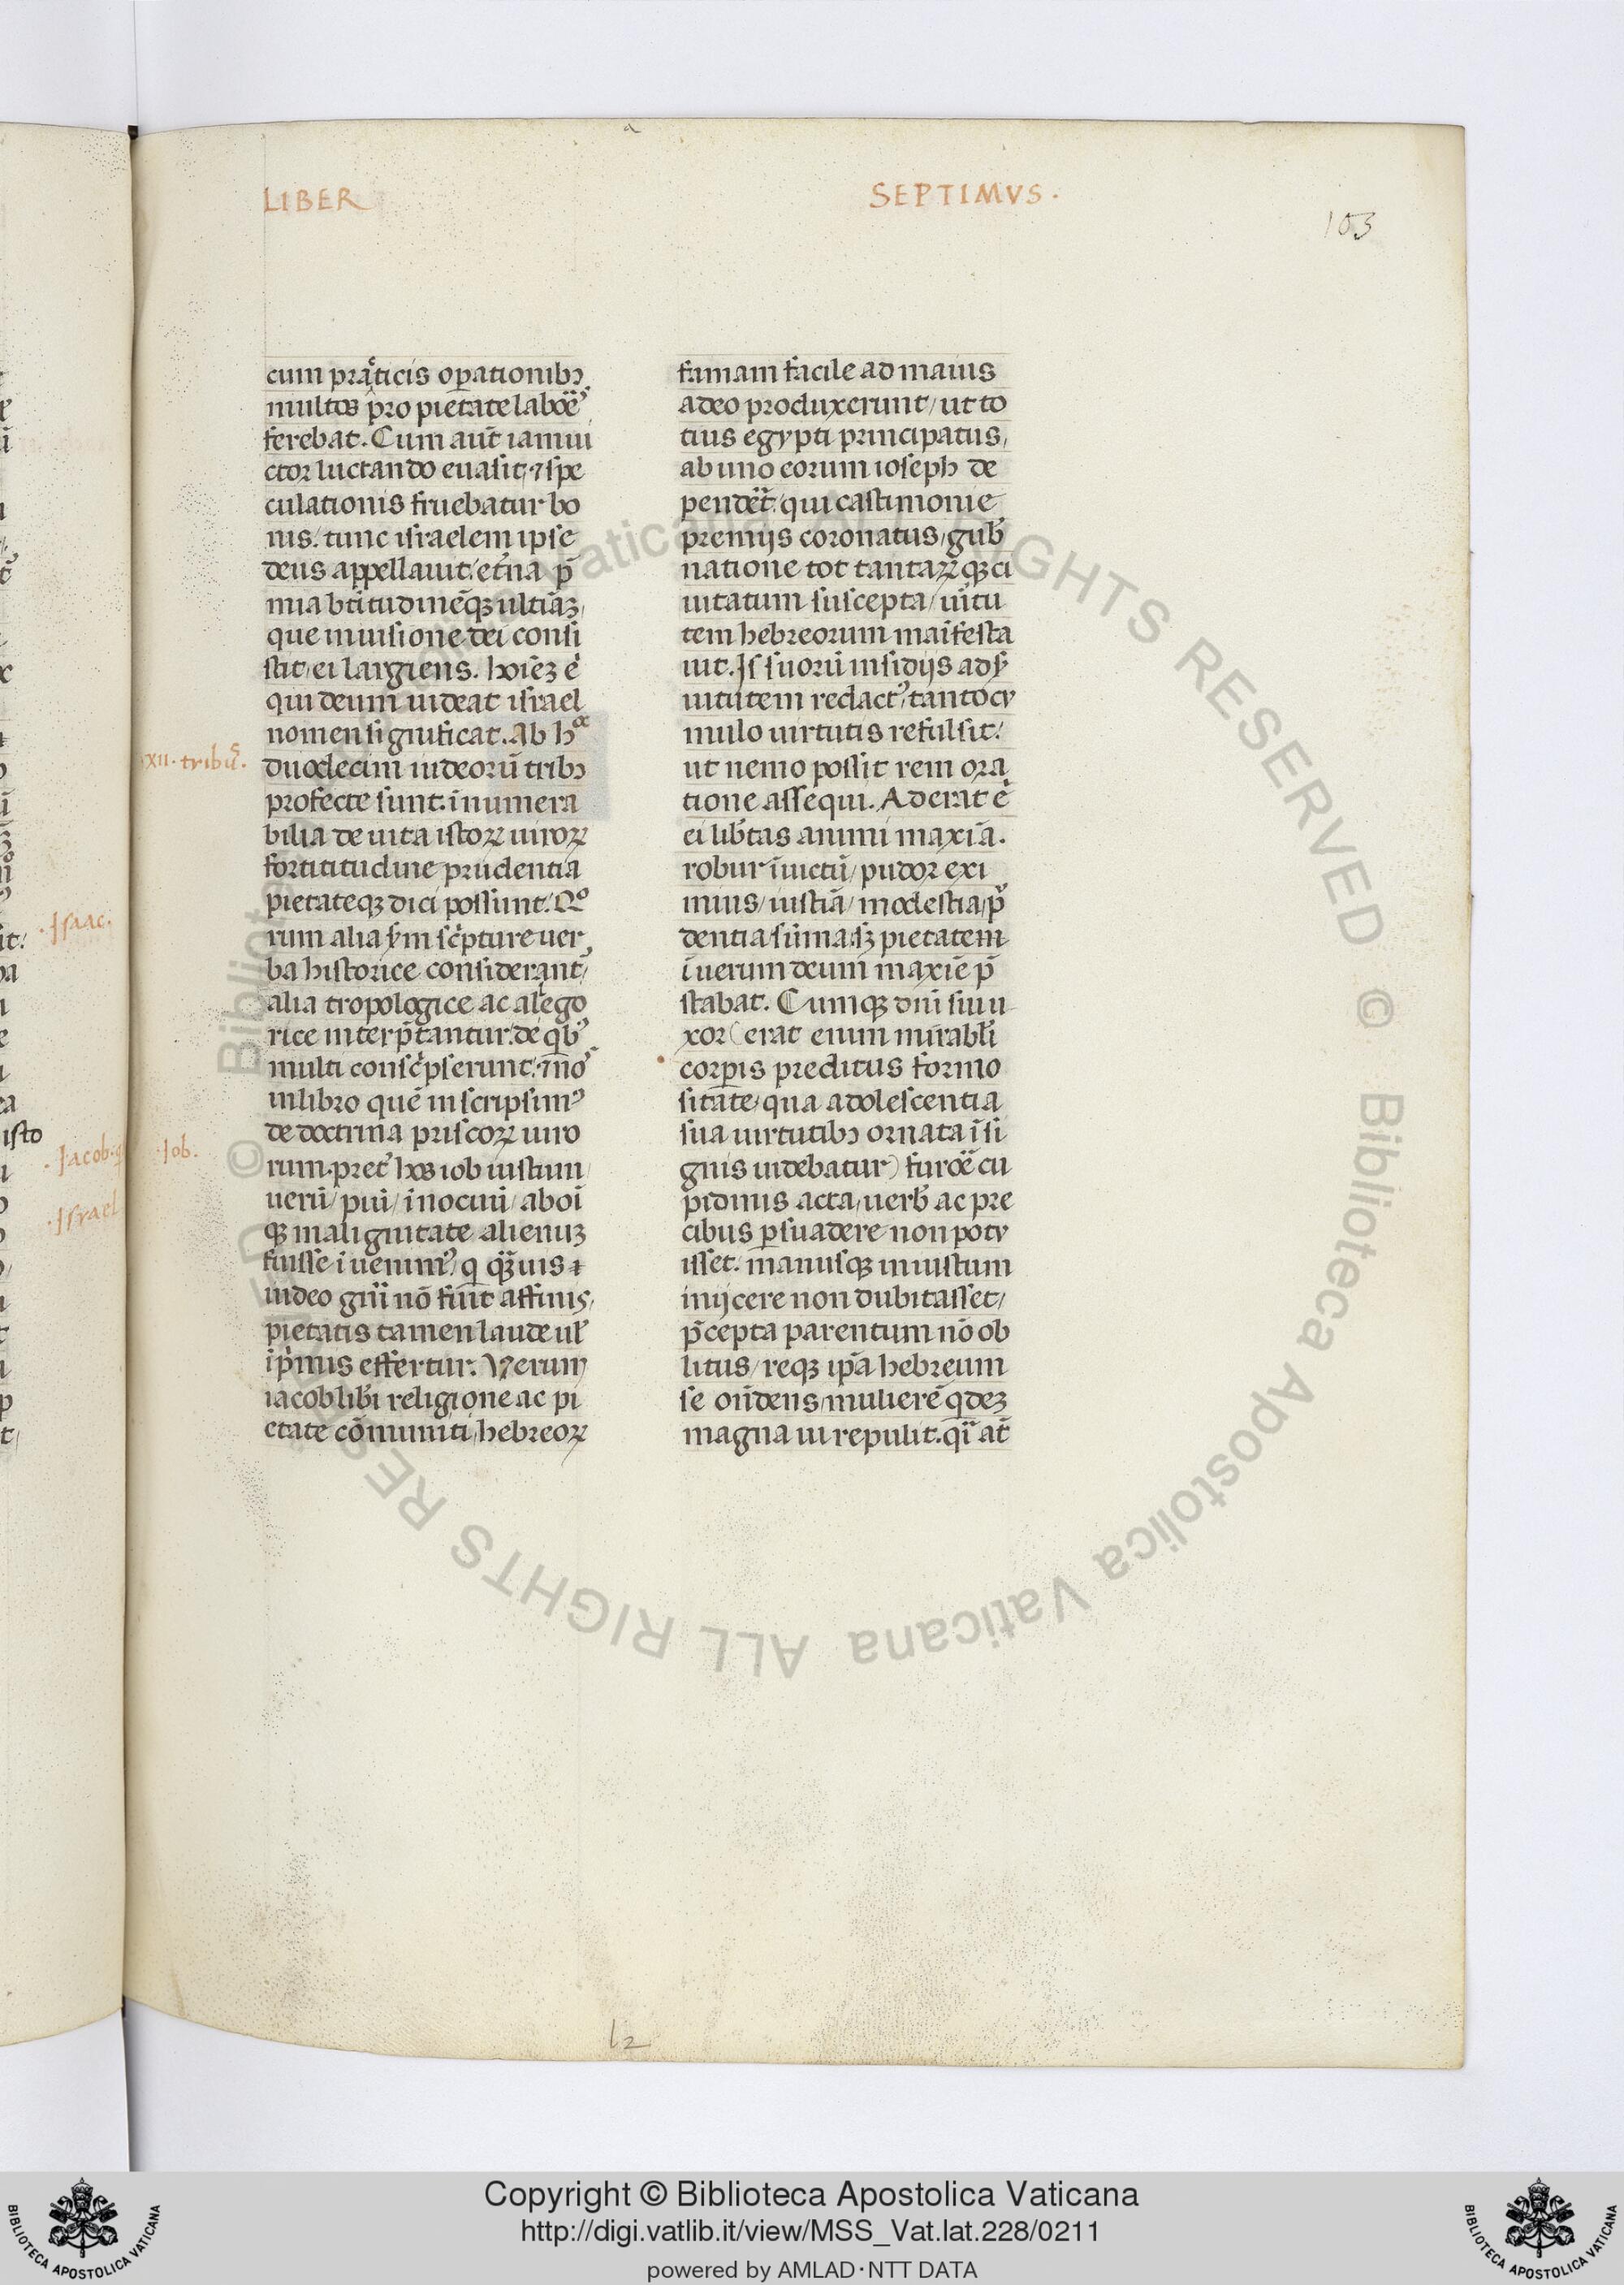 LIBER SEPTIMVS.
103
cum pra᷒ticis oꝑationibꝫ
multos pro pietate laboē᷒
ferebat. Cum aut̄ iam ui
ctor luctando euasit/ ⁊ spe
culationis fruebatur bo
nis/ tunc israelem ipse
deus appellauit/ et̄na p̄
mia btītudinēqꝫ ultiāꝫ,
que in uisione dei consi
stit/ ei largiens. hoīēꝫ ē
qui deum uideat israel
nomen significat. Ab h᷒
duodecim iudeoꝝ tribꝫ
profecte sunt. īnumera
bilia de uita istoꝝ uiroꝝ
fortititudine prudentia
pietateqꝫ dici possunt. Qͦ
rum alia sȳ in sc̓pture uer
ba historice considerant᷒/
alia tropologice ac alego
rice interp̄tantur. de qb᷒
multi consc̓pserunt. ⁊ nō᷒
in libro quē inscripsim᷒
de doctrina priscoꝝ uiro
rum. pret̓ hos iob iustum
uerū/ piū/ īnocuū/ ab oī
qꝫ malignitate alienuꝫ
fuisse īuenim᷒/ q quāuis a
iudeo gn̄i nō fuīt affinis,
pietatis tamen laude ul̓
īp̓mis effertur. Verum
iacob lib̓i religione ac pi
etate cōmuniti/ hebreoꝝ
famam facile ad maius
adeo produxerunt/ ut to
tius egypti principatus,
ab uno eorum ioseph de
pendēt̄/ qui castimonie
premijs coronatus/ gub̓
natione tot tantaꝝqꝫ ci
uitatum suscepta/ uītu
tem hebreorum maīfesta
uit. Is suorū insidijs ad sȳ
uitutem redact᷒/ tanto cu
mulo uirtutis refulsit/
ut nemo possit rem ora
tione assequi. Aderat ē
ei lib̓tas animi maxiā.
robur īuictū/ pudor exi
mius/ iustiā/ modestia/ p᷒
dentia sūma/ sꝫ pietate m
ī uerum deum maxiē p̄
stabat. Cumqꝫ dnī sui u
xor (erat enim mirabl̓i
corꝑis preditus formo
sitate/ qua adolescentia
sua uirtutibꝫ ornata īsi
gnis uidebatur) furoē cu
pidinis acta/ uerb̓ ac pre
cibus ꝑsuadere non potu
isset. manusqꝫ iniustum
inijcere non dubitasset/
p̄cepta parentum nō ob
litus/ reqꝫ ip̄a hebreum
se on̄dens/ mulierē qdeꝫ
magna ui repulit. qī at̄
.xii. tribu᷒.
.Iob.
.Isaac.
.Iacob. q
.Israel
isto
Copyright © Biblioteca Apostolica Vaticana
http://digi.vatlib.it/view/MSS_Vat.lat.228/0211
powered by AMLAD·NTT DATA
BIBLIOTECA APOSTOLICA VATICANA
BIBLIOTECA APOSTOLICA VATICANA
© Biblioteca Apostolica Vaticana ALL RIGHTS RESERVED © Biblioteca Apostolica Vaticana ALL RIGHTS RESERVED